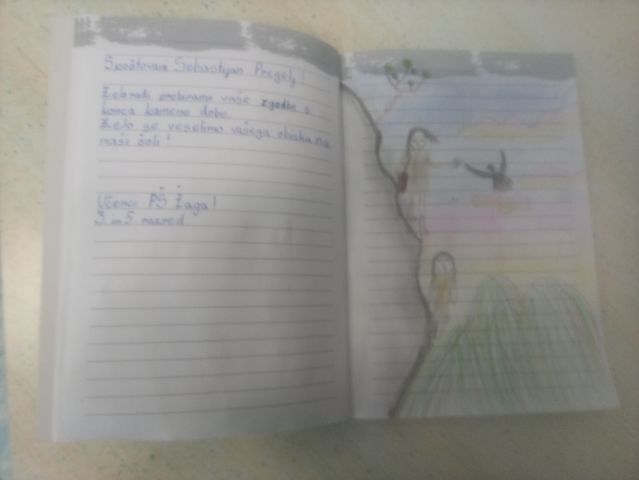 Spoštovan Sebastijan Pregelj!
Zelo radi prebiramo vaše zgodbe s
konca kamene dobe.
Zelo se veselimo vašega obiska na
naši šoli!
Učenci PŠ Žaga!
3 in 5 razred.